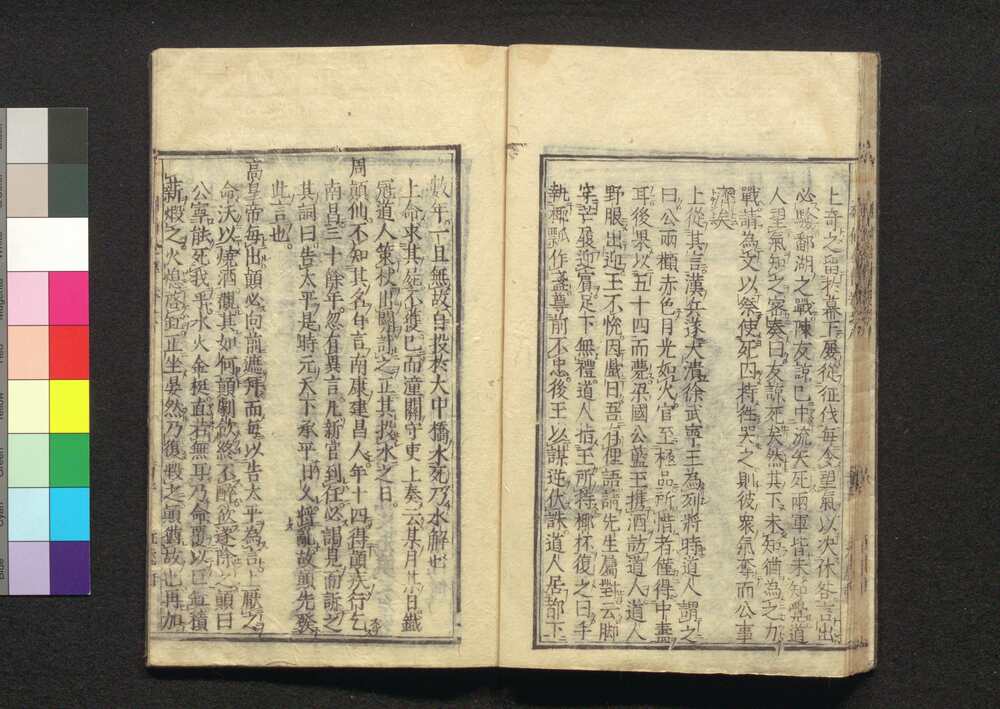 上奇之留於幕下屢從征伐每令望氣以決休咎言出
必驗鄱湖之戰陳友諒已中流矢死兩軍皆未知點道
人望氣知之密奏曰友諒死矣然其下未知猶為之力
戰請為文以祭使死囚持徃哭之則彼衆氣奪而公事
濟矣
上從其言漢兵遂大潰徐武寧王為列將時道人謂之
曰公兩顴赤色目光如火官至極品所惜者僅得中壽
耳後果以五十四而薨梁國公藍王携酒訪道人道人
野服出迎王不悅因戲曰吾有俚語請先生屬對云脚
穿芒履迎賓足下無禮道人指王所持椰杯復之曰手
執椰瓢作盞尊前不忠後王以謀逆伏誅道人居都下
數年一旦無故自投於大中橋水死乃水解也
上命求其屍不獲已而潼關守吏上奏云某月某日鐵
冠道人策杖出關計之正其投水之日
周顛仙不知其名自言南康建昌人年十四得顛疾行乞
南昌三十餘年忽有異言凡新官到任必謁見而訴之
其詞曰告太平是時元天下承平日久將亂故顛先發
此言也
高皇帝每出顛必向前遮拜而每以告太平為言上厭之
命沃以燒酒觀其如何顛劇飲終不醉欲遂除之顛曰
公寧能死我乎水火金梃直若無耳乃命覆以巨缸積
薪煆之火熄啓缸正坐晏然乃復煆之顛猶故也再加